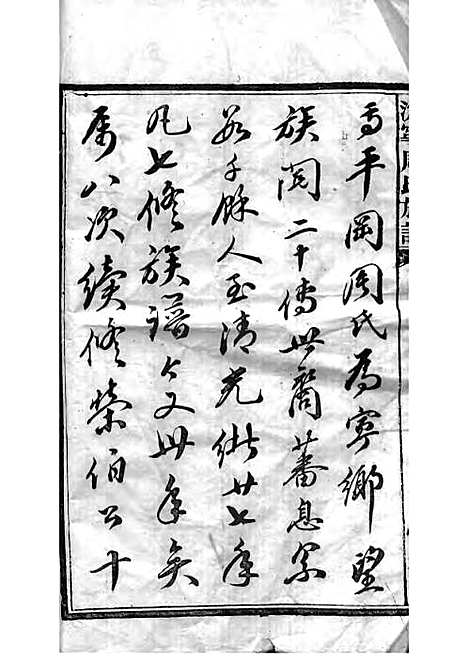 平岡周氏為寧鄉望
族閱二十傳世裔蕃息眾
數千餘人至清光緒廿七年
凡七修族譜今又卅年矣
屬八次續修榮伯公十
周氏族譜